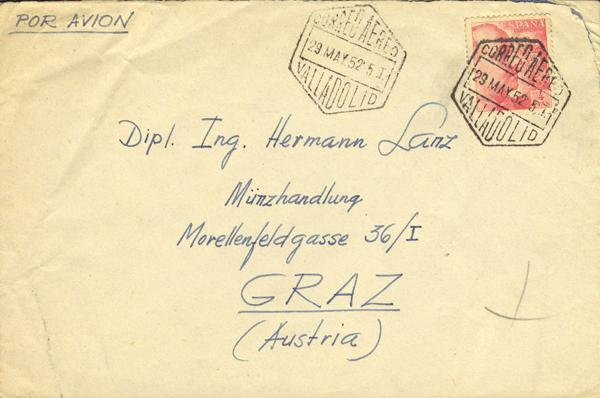 POR AVION
CORREO AEREO
29 MAY. 52 5.T.
VALLADOLID
ESPAÑA
CORREO AEREO
29 MAY. 52 5.T.
VALLADOLID
Dipl. Ing. Hermann Lanz
Münzhandlung
Morellenfeldgasse 36/I
GRAZ
(Austria)